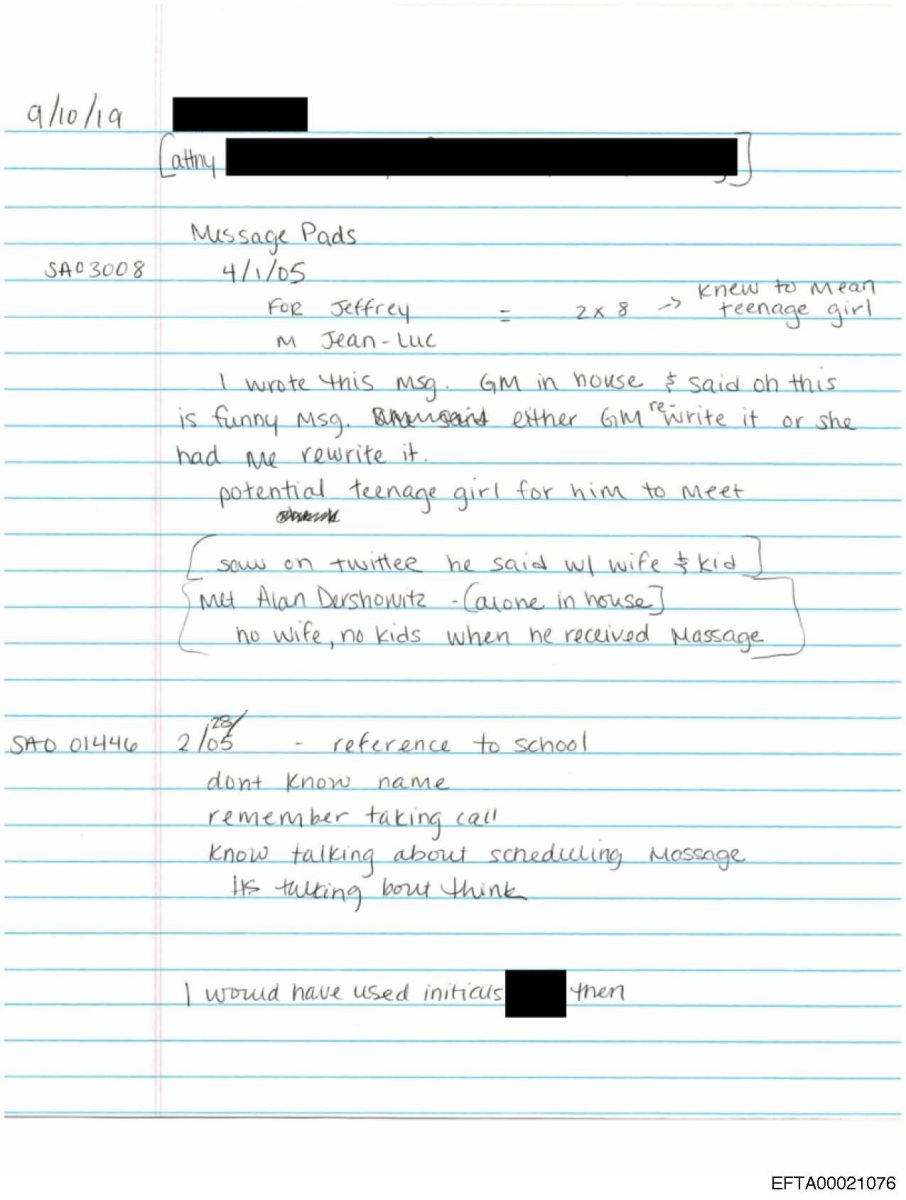 9/10/19
[attny ]
Message Pads
SA03008 4/1/05
FOR Jeffrey = 2 x 8 → knew to mean teenage girl
M Jean-Luc
I wrote this msg. GM in house & said oh this
is funny msg. either GM re-write it or she
had me rewrite it.
potential teenage girl for him to meet
[saw on twitter he said w/ wife & kid]
[Met Alan Dershowitz - [alone in house]
no wife, no kids when he received Massage]
SAO 01446 2/28/05 - reference to school
dont know name
remember taking call
know talking about scheduling Massage
talking bout think
I would have used initials then
EFTA00021076